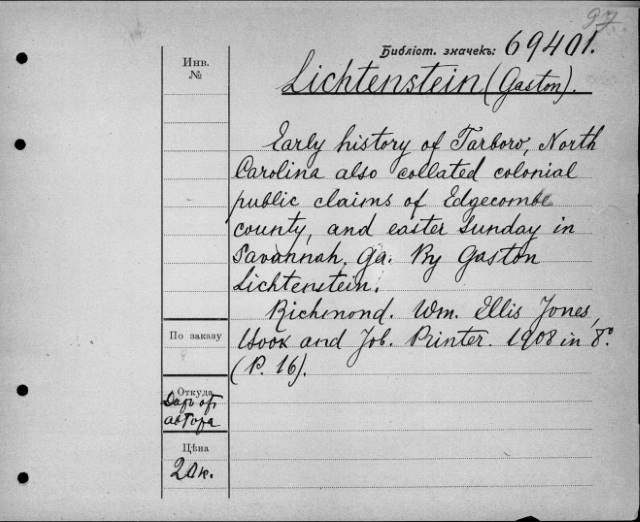 97
Библіот. значекъ: 69401.
Инв.
№
Lichtenstein (Gaston).
Early history of Tarboro, North
Carolina also collated colonial
public claims of Edgecombe
county, and easter sunday in
Savannah. Ga. By Gaston
Lichtenstein.
Richmond. Wm. Ellis Jones,
and Job. Printer. 1908 in 8°.
(P. 16).
По заказу
Откуда
Даръ от
автора
Цѣна
20к.